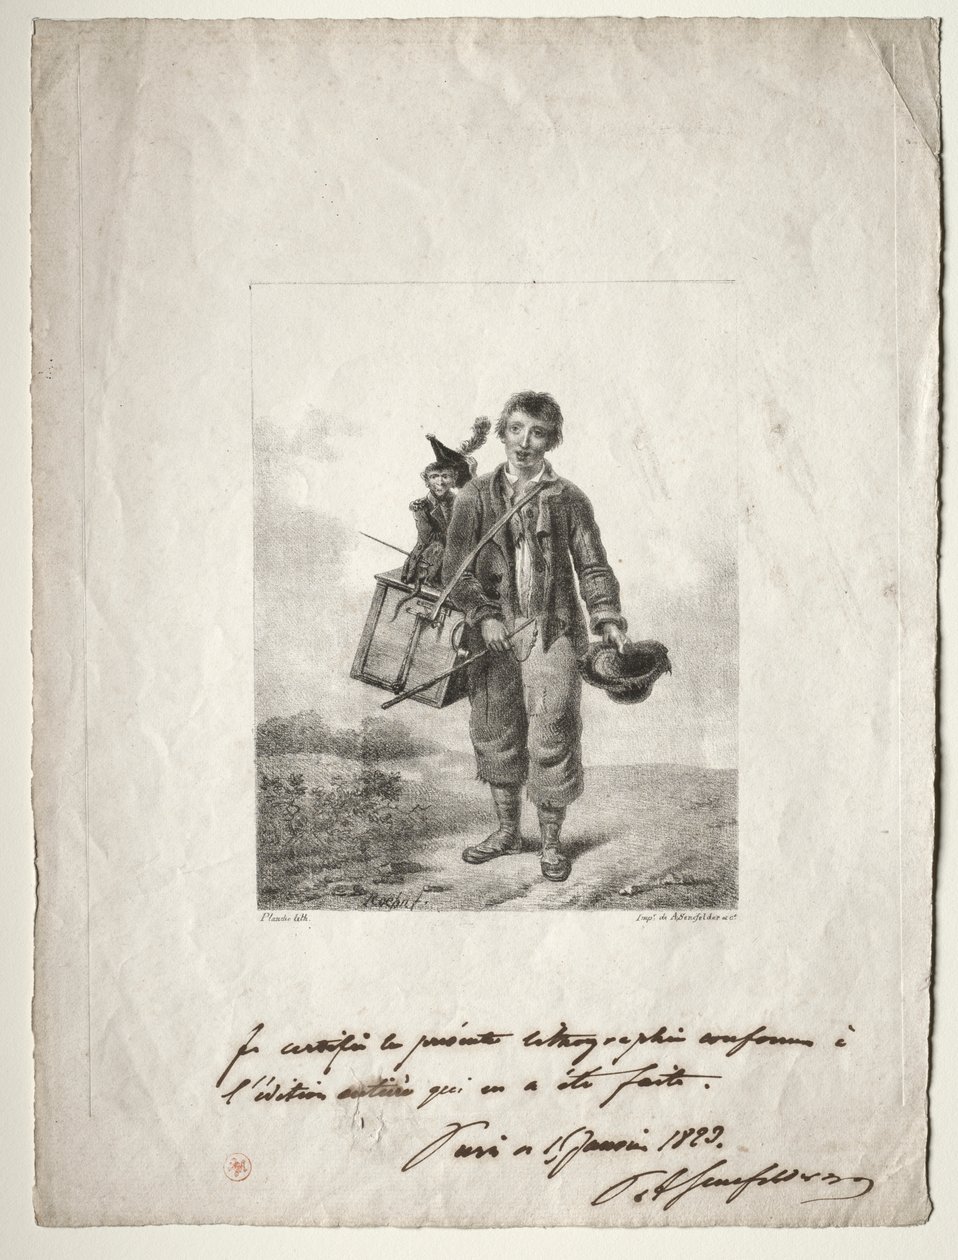 Planche lith.
Impie. de A. Senefelder & Ce.
Je certifie la présente lithographie conforme à
l'édition entière qui en a été faite.
Paris ce 15 Janvier 1823.
A Senefelder